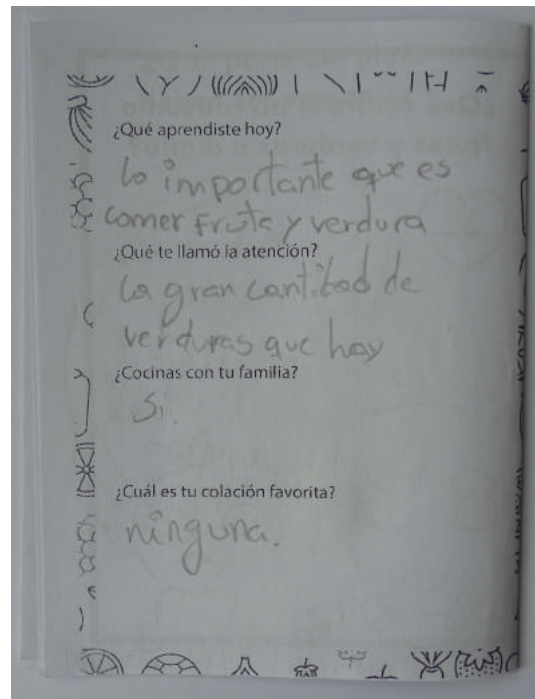 ¿Qué aprendiste hoy?
lo importante que es
comer fruta y verdura
¿Qué te llamó la atención?
la gran cantidad de
verduras que hay
¿Cocinas con tu familia?
Si.
¿Cuál es tu colación favorita?
ninguna.